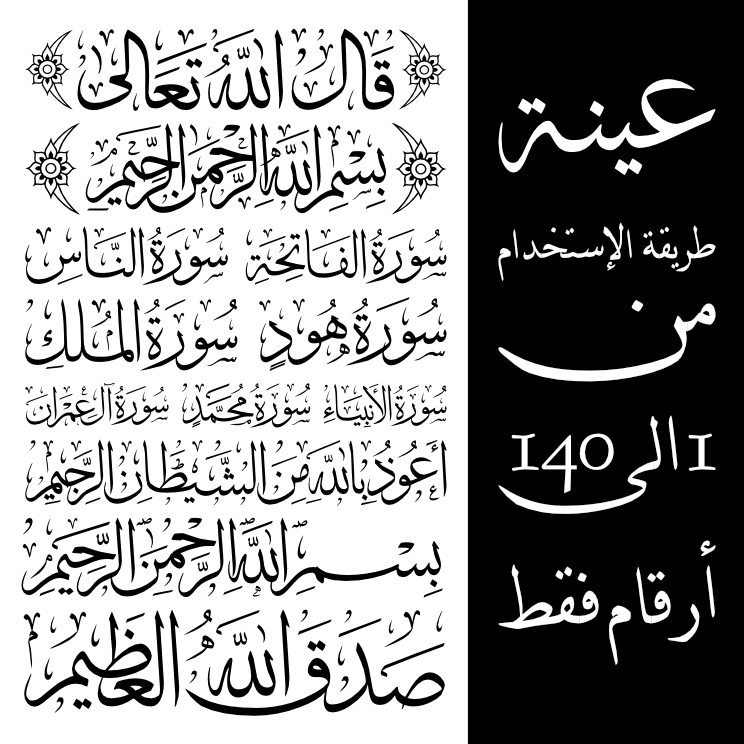 قَالَ اللَّهُ تَعَالَى
بِسْمِ اللَّهِ الرَّحْمَنِ الرَّحِيمِ
سُورَةُ الفَاتِحَةِ سُورَةُ النَّاسِ
سُورَةُ هُودٍ سُورَةُ المُلْكِ
سُورَةُ الأَنْبِيَاءِ سُورَةُ مُحَمَّدٍ سُورَةُ آلِ عِمْرَانَ
أَعُوذُ بِاللَّهِ مِنَ الشَّيْطَانِ الرَّجِيمِ
بِسْمِ اللَّهِ الرَّحْمَنِ الرَّحِيمِ
صَدَقَ اللَّهُ العَظِيمُ
عينة
طريقة الإستخدام
من
1 الى 140
أرقام فقط